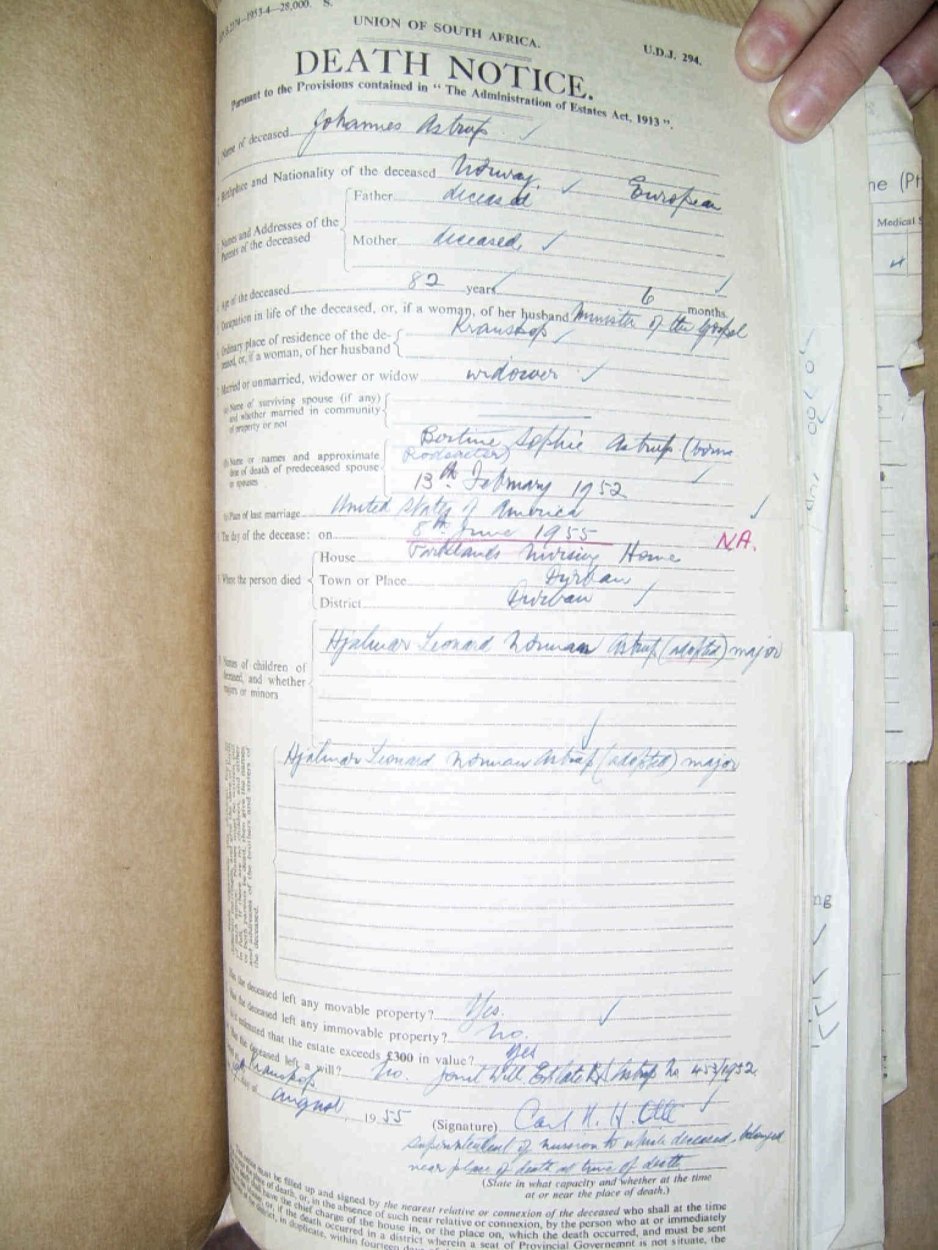 1953-4—28,000. S.
UNION OF SOUTH AFRICA.
U.D.J. 294.
DEATH NOTICE.
Pursuant to the Provisions contained in "The Administration of Estates Act, 1913".
Name of deceased Johannes Astrup
Birthplace and Nationality of the deceased Norway. European
Names and Addresses of the Parents of the deceased
Father deceased
Mother deceased
Age of the deceased 82 years 6 months.
Occupation in life of the deceased, or, if a woman, of her husband Minister of the Gospel
Ordinary place of residence of the deceased, or, if a woman, of her husband Kranskop
Married or unmarried, widower or widow widower
(a) Name of surviving spouse (if any) and whether married in community of property or not
(b) Name or names and approximate date of death of predeceased spouse or spouses
Bertine Sophie Astrup (born
13th February 1952
(c) Place of last marriage United States of America
The day of the decease: on 8th June 1955
N.A.
Where the person died
House Parklands Nursing Home
Town or Place Durban
District Durban
Names of children of deceased, and whether majors or minors
Hjalmar Leonard Norman Astrup (adopted) major
Hjalmar Leonard Norman Astrup (adopted) major
of the brothers and sisters of
the deceased.
Has the deceased left any movable property? Yes.
Has the deceased left any immovable property? No.
Is it estimated that the estate exceeds £300 in value? yes
Has the deceased left a will? No. Joint Will Estate Astrup No 453/1952
Kranskop
day of August 1955
(Signature) Carl H. H. Otte
Superintendent of mission to which deceased belonged
near place of death at time of death
(State in what capacity and whether at the time
at or near the place of death.)
must be filled up and signed by the nearest relative or connexion of the deceased who shall at the time
place of death, or, in the absence of such near relative or connexion, by the person who at or immediately
have the chief charge of the house in, or the place on, which the death occurred, and must be sent
or, if the death occurred in a district wherein a seat of Provincial Governemnt is not situate, the
district, in duplicate, within fourteen
ne (Pr
Medical